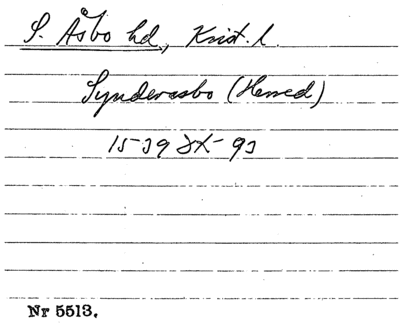 S. Åsbo hd., Krist. l.
Synderasbo (Herred)
15-39 DK-93
Nr 5513.